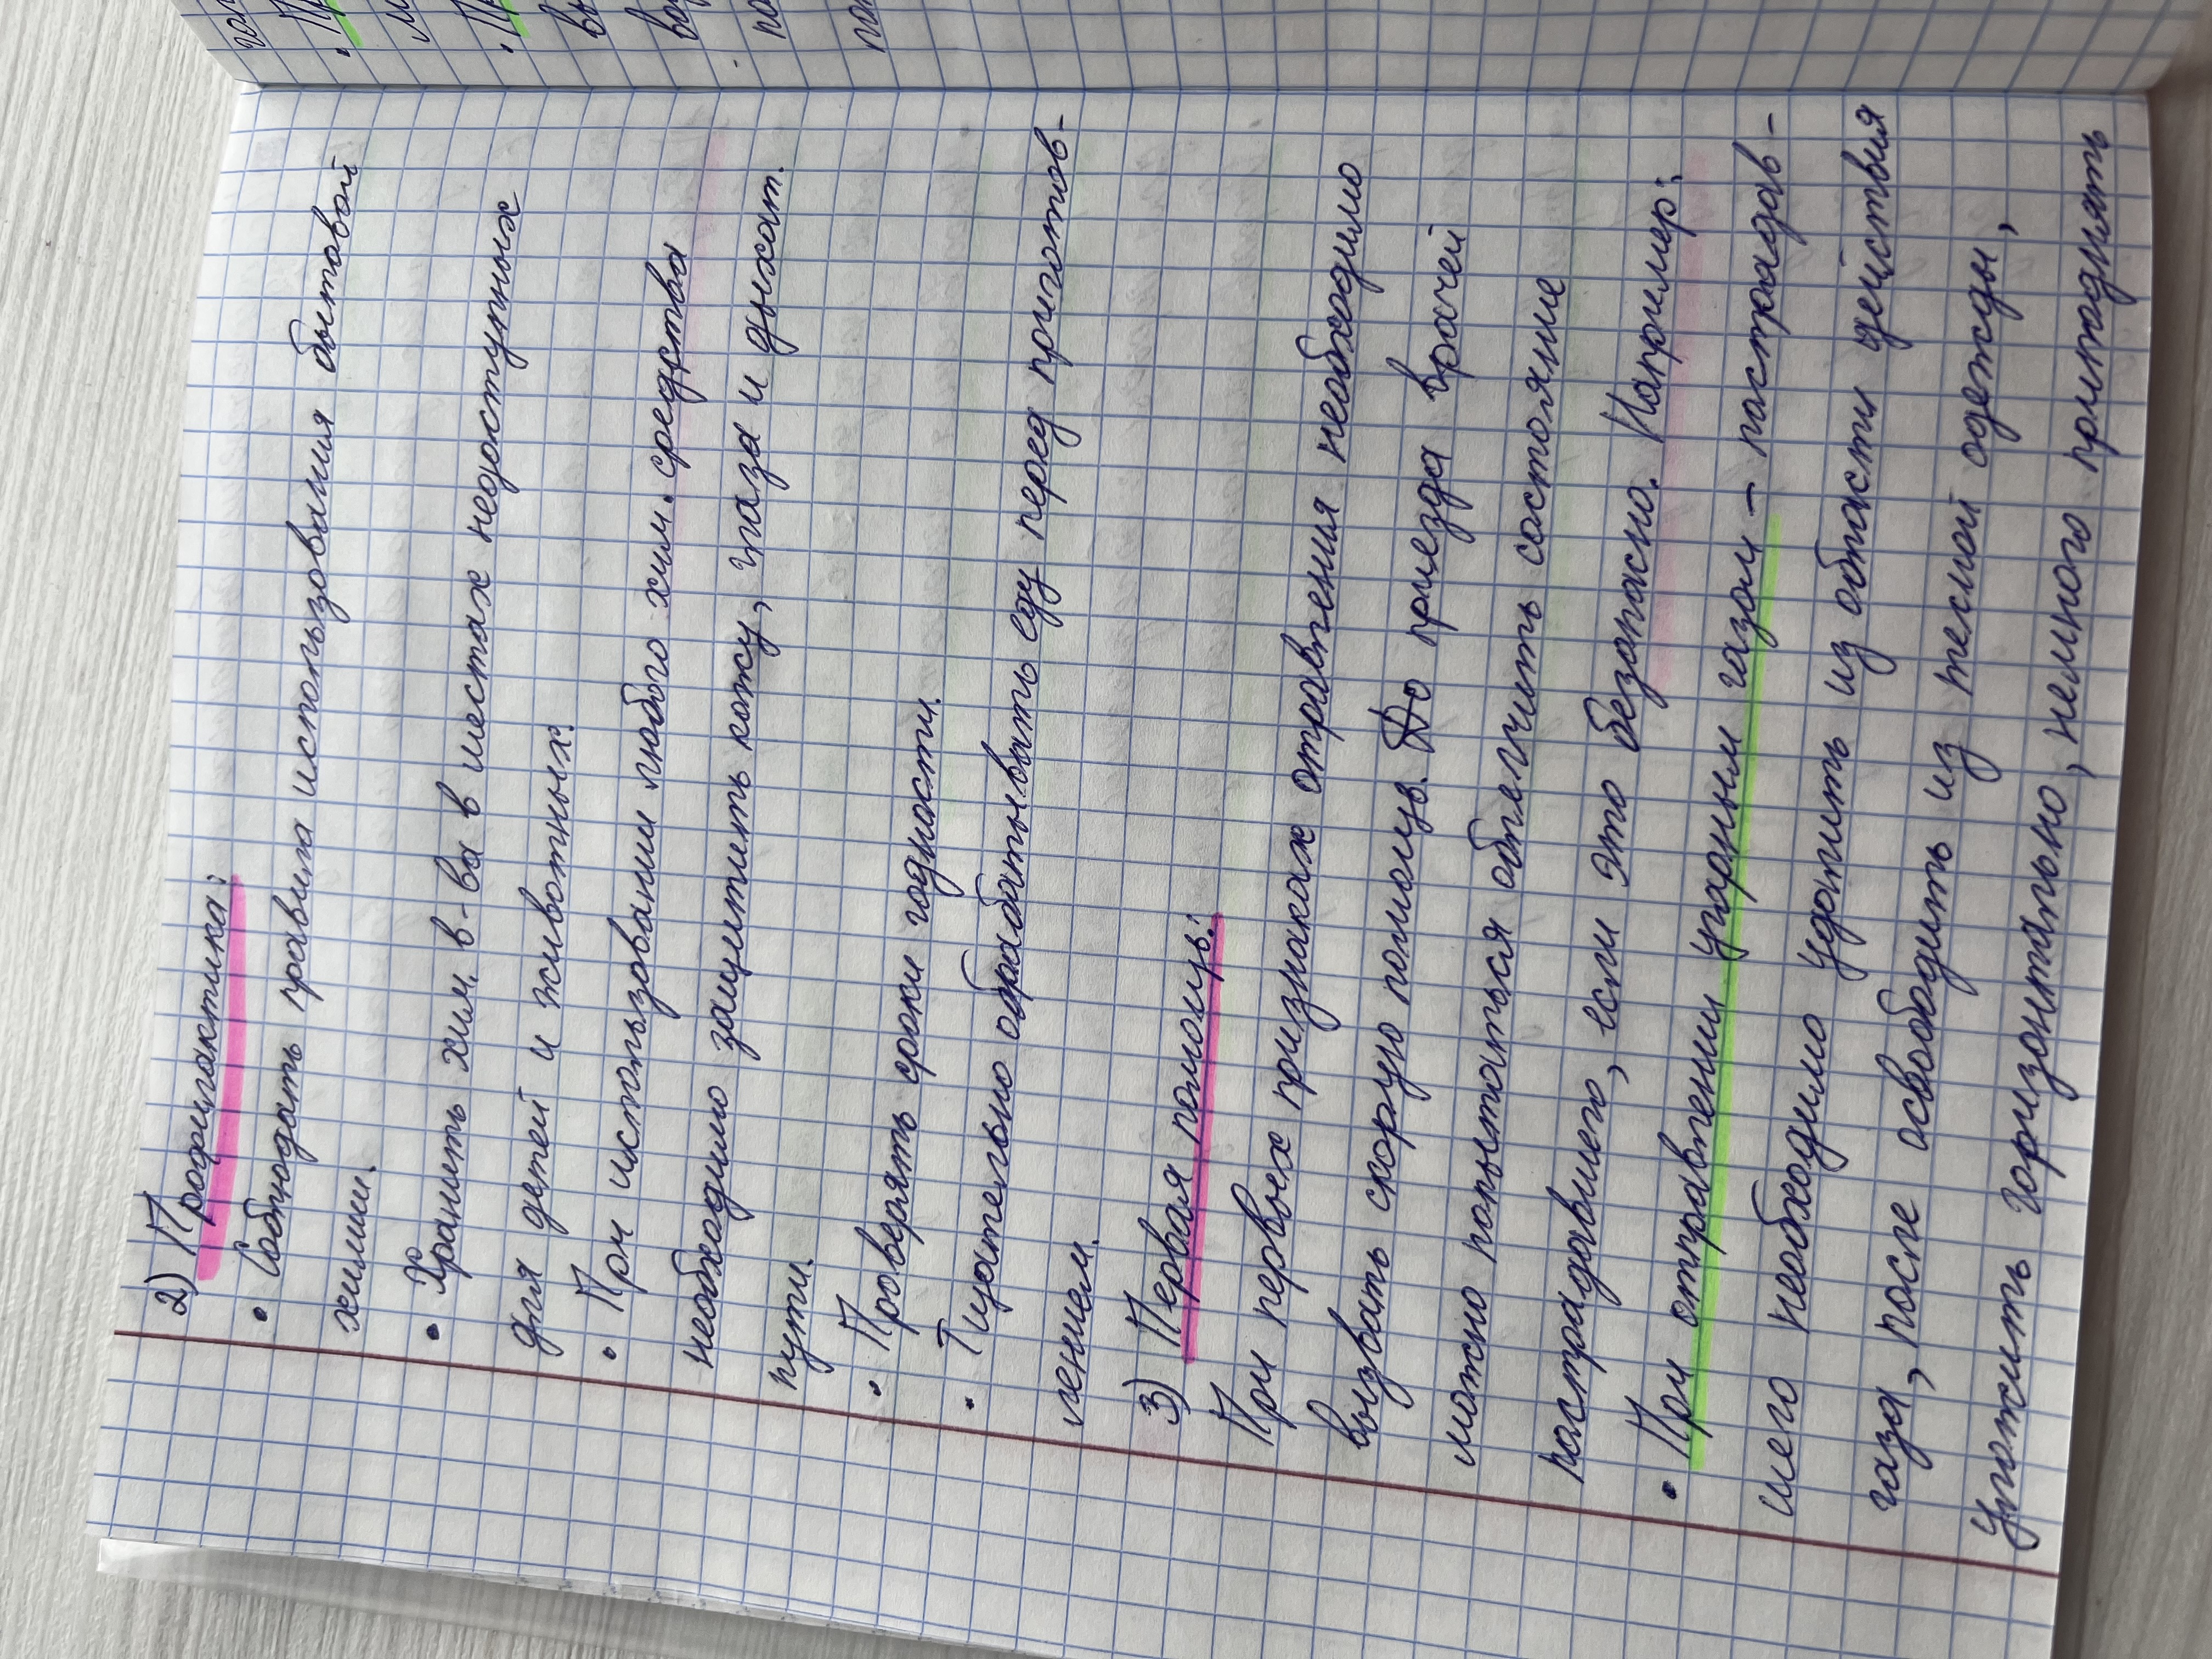 2) Профилактика:
• Соблюдать правила использования бытовой
химии.
• Хранить хим. в-ва в местах недоступных
для детей и животных.
• При использовании любого хим. средства
необходимо защитить кожу, глаза и дыхат.
пути.
• Проверять сроки годности.
• Тщательно обрабатывать еду перед приготов-
лением.
3) Первая помощь:
При первых признаках отравления необходимо
вызвать скорую помощь. До приезда врачей
можно попытаться облегчить состояние
пострадавшего, если это безопасно. Например:
• При отравлении угарным газом - пострадав-
шего необходимо удалить из области действия
газа, после освободить из тесной одежды,
уложить горизонтально, немного приподнять